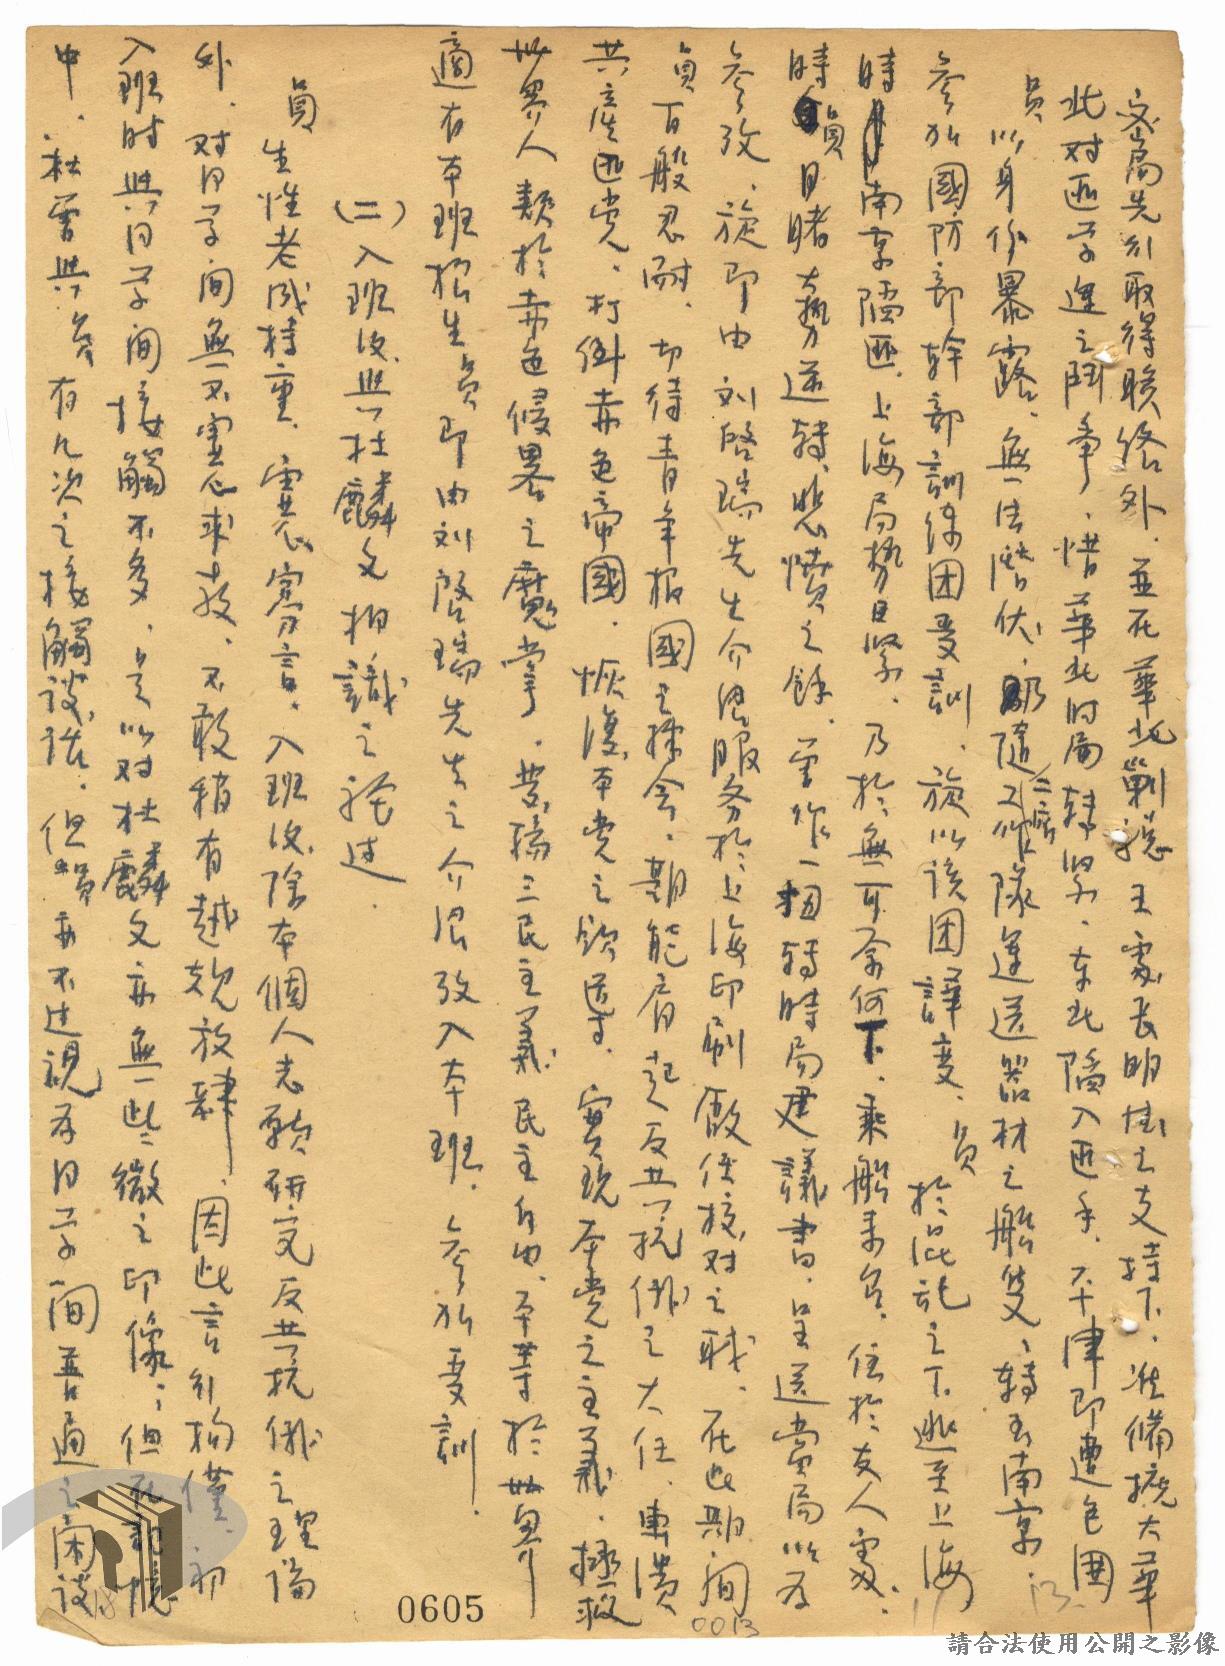 密局先則取得聯絡外．並在華北剿總王處長明德之支持下．準備擴大華
北对匪学進之鬥爭．惜華北时局轉緊．东北陷入匪手．平津即遭包圍
員以身份暴露．無法潛伏．隨工作隊運送器材之船隻．轉至南京．
參加國防部幹部訓练团受訓．旋以該团譁变．員於混乱之下逃至上海
時南京陷匪．上海局势日緊．乃於無可奈何下．乘船来台．住於友人處．
時職目睹大势逆轉．悲憤之餘．曾作一扭轉時局建議書．呈送當局以为
參攷．旋即由刘啓瑞先生介紹服务於上海印刷廠任校对之職．在此期间
員百般忍耐．切待青年報國之机会．期能肩起反共抗俄之大任．擊潰
共產匪党．打倒赤色帝國．恢復本党之領導．實現本党之主義．拯救
世界人類於赤色侵畧之魔掌．普揚三民主義民主自由．平等於世界
適有本班招生員即由刘啓瑞先生之介紹攷入本班．參加受訓．
(二)入班後與杜麟文相識之經过．
員生性老成持重．寡言．入班後除本個人志願研究反共抗俄之理論
外．对同学间無不虛心求教．不敢稍有越規放肆．因此言行拘僅．初
入班时與同学间接觸不多．是以对杜麟文亦無一些微之印像．但在記憶
中．杜曾與員有几次之接觸談話．但職亦不过視为同学间普通之闲談
0605
0013
13.
18
請合法使用公開之影像